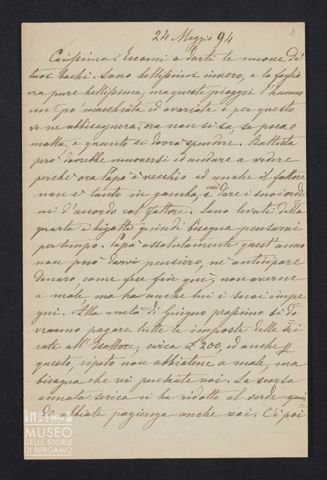 24 Maggio 94
Carissima: Eccomi a darti le nuove de'
tuoi bachi. Sono bellissimi invero, e la foglia
era pure bellissima, ma queste pioggie l'hanno
un pò macchiata ed avariata e per questo
ve ne abbisognerà; ora non si sa, se poca o
molta, e quanto si dovrà spendere. Battista
però dovrebbe muoversi ed andare a vedere
perché ora Papà è vecchio ed anche il fattore
non è tanto in gamba, e dare i suoi ordi
ni d'accordo col fattore. Sono levati della
quarta i bigatti quindi bisogna pensarvi
per tempo. Papà assolutamente quest'anno
non può darvi pensiero, nè anticipare
denaro come fece fin quì, non averne
a male, ma ha anche lui i suoi impe
gni. Alla metà di Giugno prossimo si do
vranno pagare tutte le imposte delle
rate all'Esattore, circa £ 200, ed anche p
questo, ripeto non abbiatene a male, ma
bisogna che vi pensiate voi. La scorsa
annata serica ci ha ridotte al verde quin
di abbiate pazienza anche voi. C'è poi
MUSEO
DELLE STORIE
DI BERGAMO